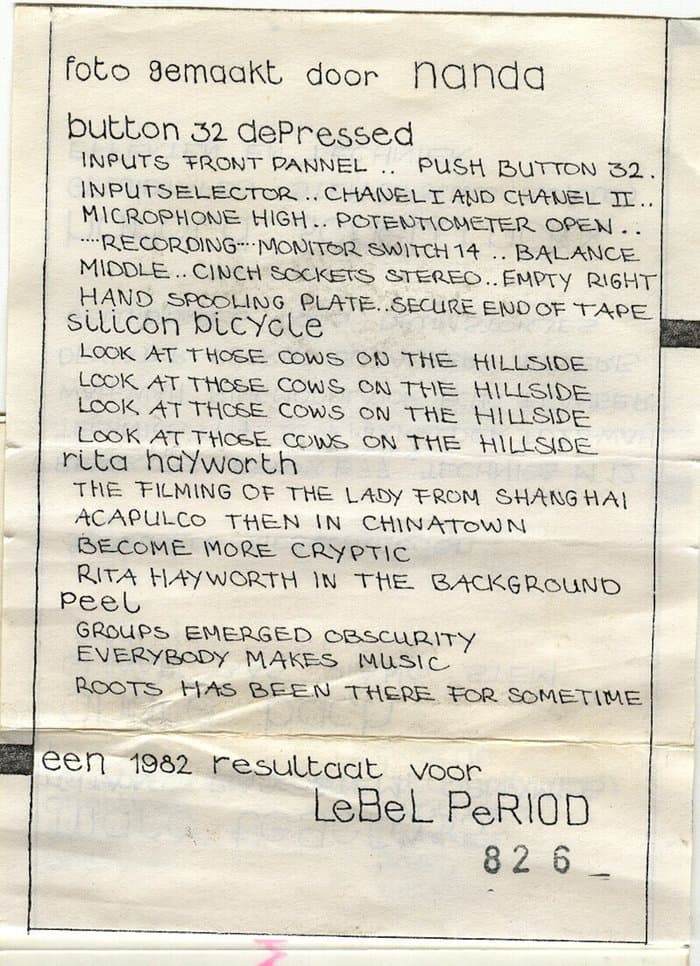 foto gemaakt door nanda
button 32 dePressed
INPUTS FRONT PANNEL .. PUSH BUTTON 32.
INPUTSELECTOR .. CHANEL I AND CHANEL II ..
MICROPHONE HIGH .. POTENTIOMETER OPEN ..
....RECORDING.... MONITOR SWITCH 14 .. BALANCE
MIDDLE .. CINCH SOCKETS STEREO .. EMPTY RIGHT
HAND SPOOLING PLATE .. SECURE END OF TAPE
silicon bicycle
LOOK AT THOSE COWS ON THE HILLSIDE
LOOK AT THOSE COWS ON THE HILLSIDE
LOOK AT THOSE COWS ON THE HILLSIDE
LOOK AT THOSE COWS ON THE HILLSIDE
rita hayworth
THE FILMING OF THE LADY FROM SHANGHAI
ACAPULCO THEN IN CHINATOWN
BECOME MORE CRYPTIC
RITA HAYWORTH IN THE BACKGROUND
peel
GROUPS EMERGED OBSCURITY
EVERYBODY MAKES MUSIC
ROOTS HAS BEEN THERE FOR SOMETIME
een 1982 resultaat voor
LeBeL PeRIOD
826_